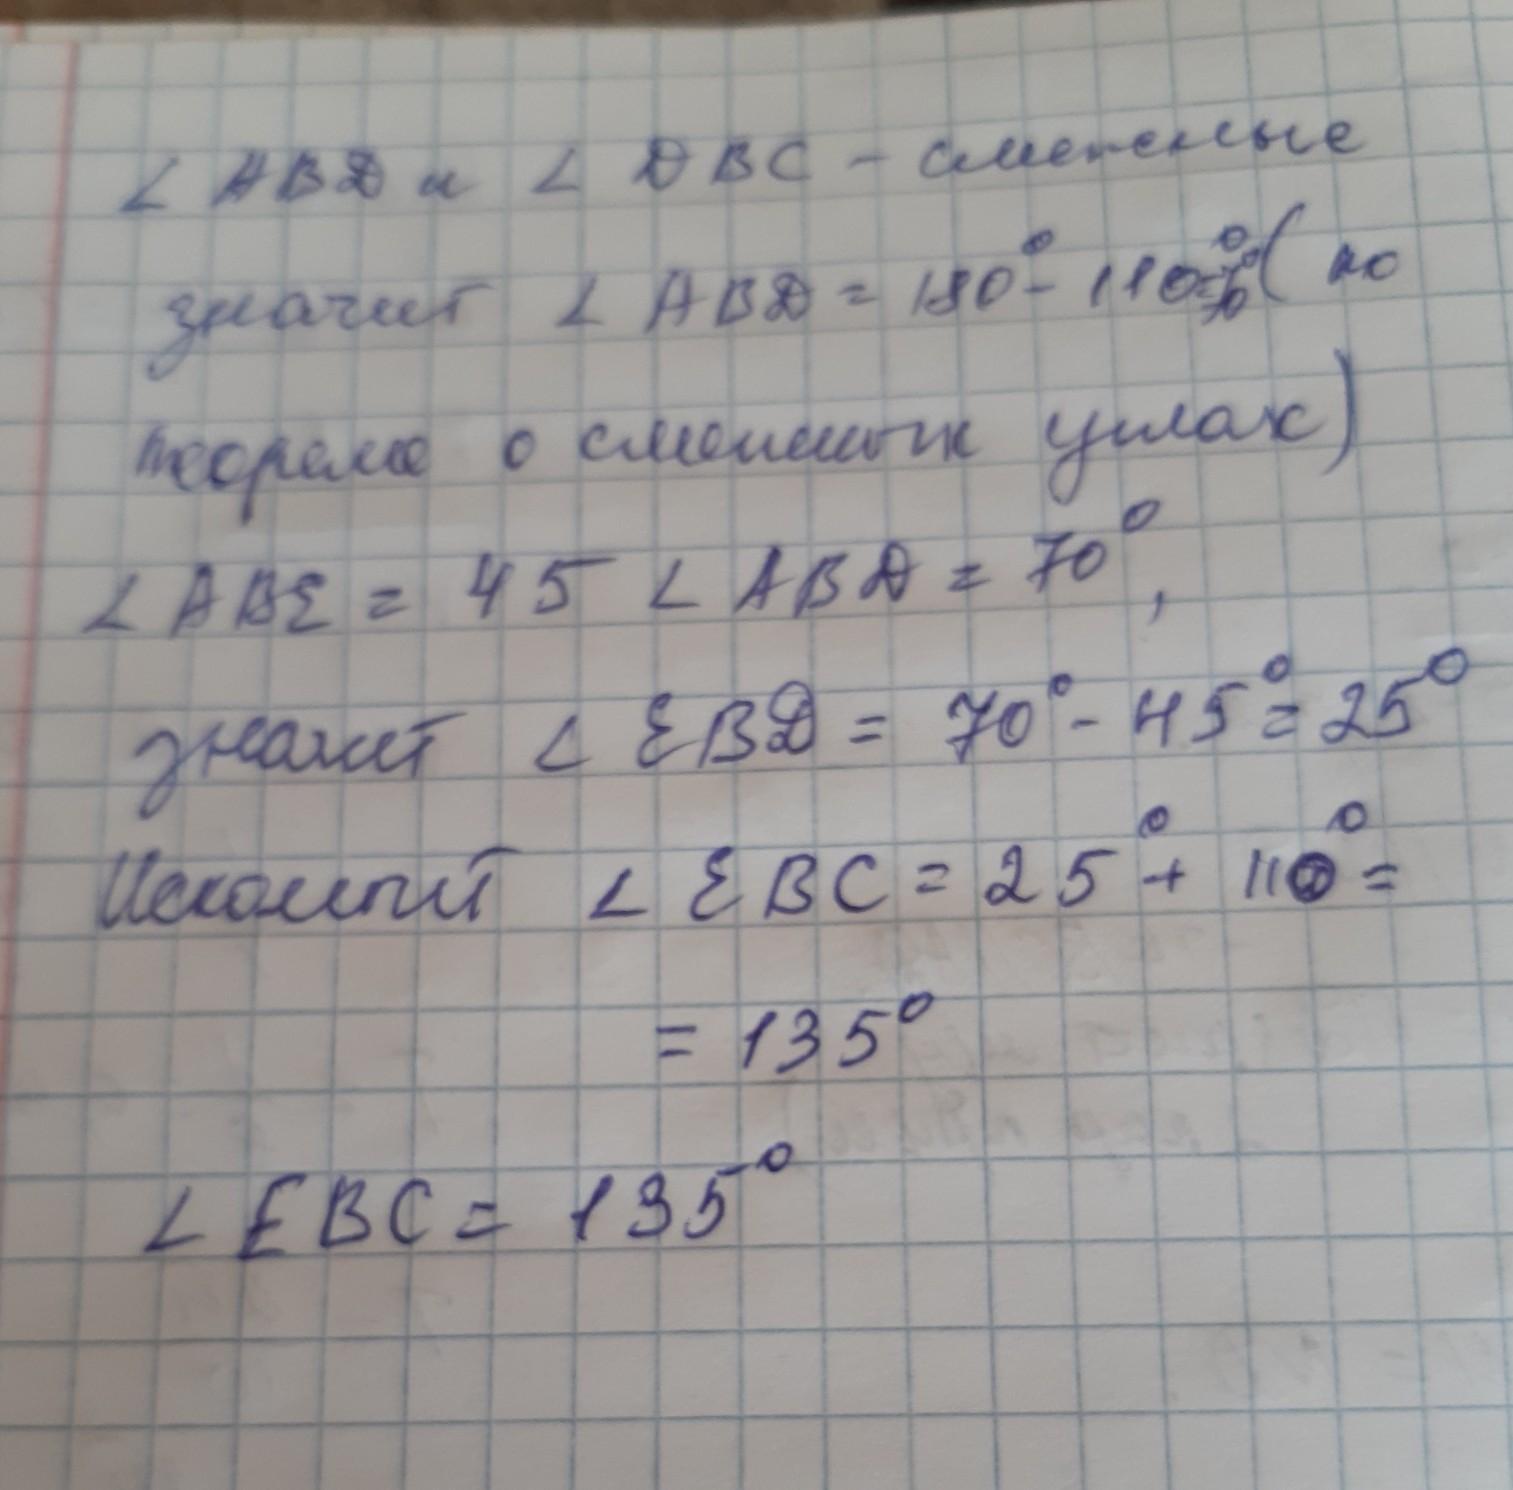 ∠ ABD и ∠ DBC - смежные
значит ∠ ABD = 180° - 110° = 70° ( по
теореме о смежных углах)
∠ ABE = 45 ∠ ABD = 70°,
значит ∠ EBD = 70° - 45° = 25°
Искомый ∠ EBC = 25° + 110° =
= 135°
∠ EBC = 135°